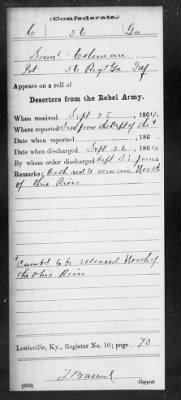 (Confederate.)
C 56 Ga
Saml Coleman
Pvt 56 Regt Ga Inf
Appears on a roll of
Deserters from the Rebel Army.
When received Sept 25, 1864.
Where reported from
Date when reported , 186 .
Date when discharged Sept 26, 1864.
By whose order discharged Capt S. E. Jones
Remarks: Oath not to remain North
of Ohio River
"Camtd to be released North of
the Ohio River
Louisville, Ky., Register No. 10; page 73
Copyist.